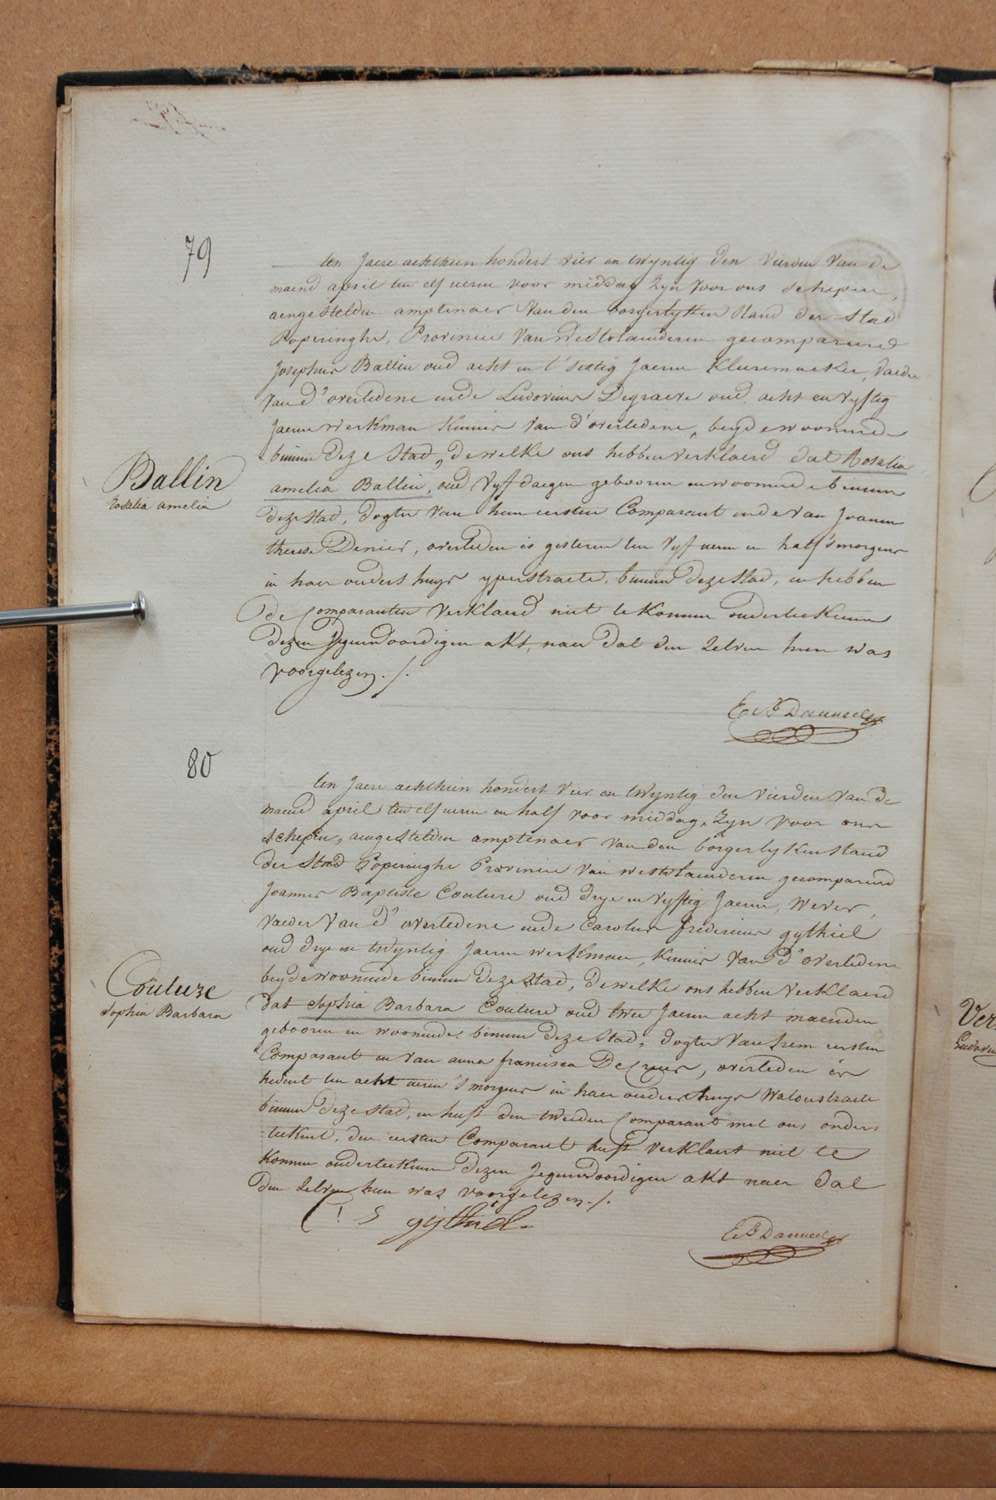 79
ten Jaere achthien hondert vier en twyntig den vierden van de
maend april ten elf ueren voor middag Zyn voor ons schepene,
aengestelden amptenaer van den borgerlyken Stand der Stad
Poperinghe, Provincie van Westvlaenderen gecompareerd
Josephus Ballin oud acht en t'sestig Jaeren Kleermaeker, vaeder
van d'overledene ende Ludovicus Degraeve oud acht en vyftig
Jaeren werkman Kennis van d'overledene, beyde woonende
binnen deze Stad, dewelke ons hebben verklaerd dat Rosalia
amelia Ballin, oud vyf daegen gebooren en woonende binnen
deze stad, dogter van hun eersten Comparant ende van Joanna
therese Denier, overleden is gisteren ten vyf ueren en half s'morgens
in haer ouders huys yperstraete, binnen deze Stad, en hebben
de Comparanten verklaerd niet te konnen onderteekenen
dezen Jegenwoordigen akt, naer dat den zelven hun was
voorgelezen ./.
Ballin
Rosalia amelia
80
ten Jaere achthien hondert vier en twyntig den vierden van de
maend april ten elf ueren en half voor middag, Zyn voor ons
schepen, aengestelden amptenaer van den borgerlyken stand
der Stad Poperinghe Provincie van westvlaenderen gecompareerd
Joannes Baptiste Couture oud drye en vyftig Jaeren, Wever,
vaeder van d'overledene ende Carolus fredericus gythiel
oud drye en twyntig Jaeren werkman, Kennis van d'overledene
beyde woonende binnen deze Stad, dewelke ons hebben verklaerd
dat Sophia Barbara Couture oud twee Jaeren acht maenden
gebooren en woonende binnen deze Stad, dogter van hem eersten
Comparant en van anna francisca, overleden is
heden ten acht ueren s'morgens in haer ouders huys
binnen deze stad, en heeft den tweeden Comparant met ons onder=
=teekent, den eersten Comparant heeft verklaert niet te
konnen onderteekenen dezen Jegenwoordigen akt naer dat
den zelven hun was voorgelezen ./.
Couture
Sophia Barbara
gythiel